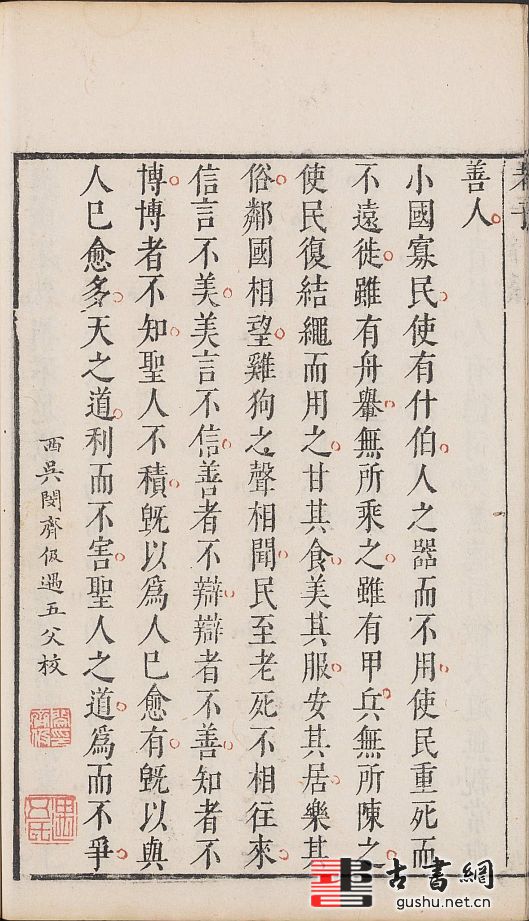 善人
小國寡民使有什伯人之器而不用使民重死而
不遠徙雖有舟轝無所乘之雖有甲兵無所陳之
使民復結繩而用之甘其食美其服安其居樂其
俗鄰國相望雞狗之聲相聞民至老死不相往來
信言不美美言不信善者不辯辯者不善知者不
博博者不知聖人不積旣以爲人已愈有旣以與
人已愈多天之道利而不害聖人之道爲而不爭
西吳閔齊伋遇五父校
古書網
gushu.net.cn